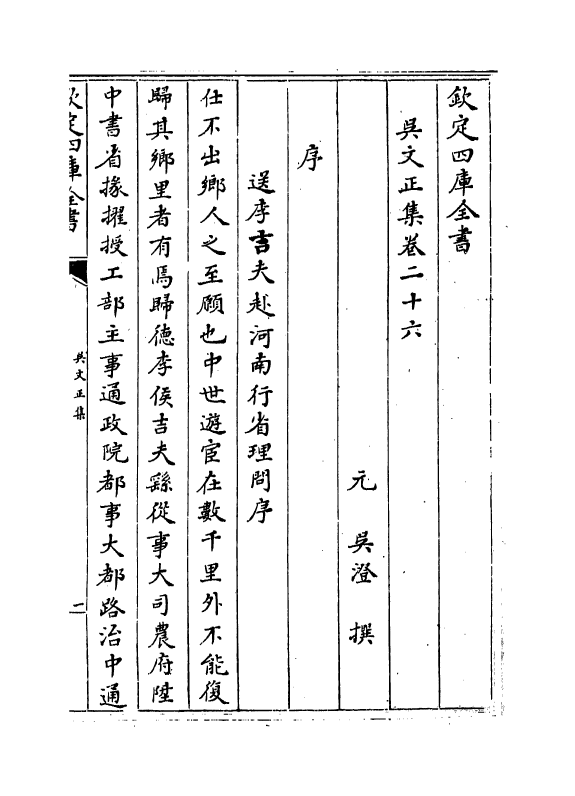 欽定四庫全書
吳文正集卷二十六
元 吳澄 撰
序
送李吉夫赴河南行省理問序
仕不出鄉人之至願也中世遊宦在數千里外不能復
歸其鄉里者有焉歸德李侯吉夫繇從事大司農府陞
中書省掾擢授工部主事通政院都事大都路治中通
欽定四庫全書
吳文正集